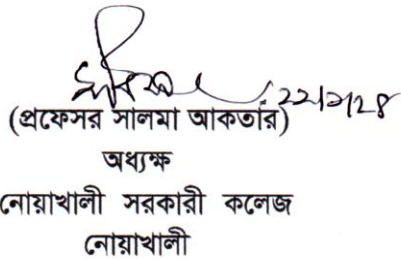 (প্রফেসর সালমা আকতার)
অধ্যক্ষ
নোয়াখালী সরকারী কলেজ
নোয়াখালী